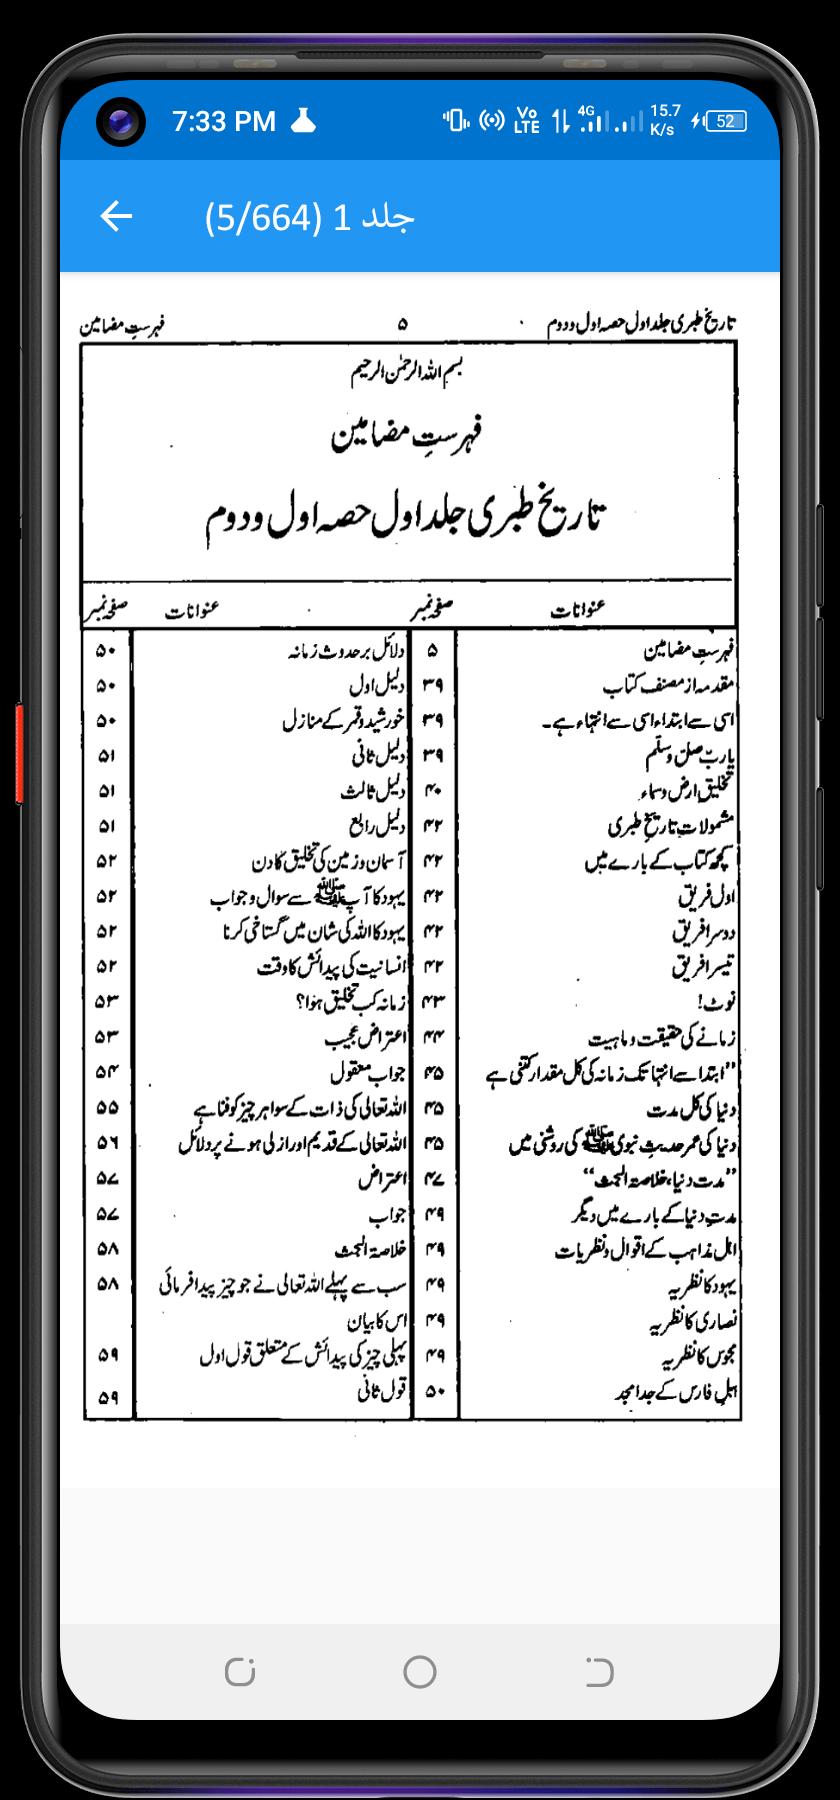 7:33 PM
Vo LTE
4G
15.7 K/s
52
جلد 1 (5/664)
تاریخ طبری جلد اول حصہ اول و دوم ۵ فہرستِ مضامین
بسم اللہ الرحمٰن الرحیم
فہرستِ مضامین
تاریخ طبری جلد اول حصہ اول و دوم
عنوانات صفحہ نمبر عنوانات صفحہ نمبر
فہرستِ مضامین ۵
مقدمہ از مصنف کتاب ۳۹
اسی سے ابتداء اسی سے انتہاء ہے۔ ۳۹
یا ربّ صلّ وسلّم ۳۹
تخلیق ارض و سماء ۴۰
مشمولات تاریخِ طبری ۴۲
کچھ کتاب کے بارے میں ۴۲
اول فریق ۴۲
دوسرا فریق ۴۲
تیسرا فریق ۴۲
نوٹ! ۴۳
زمانے کی حقیقت و ماہیت ۴۴
”ابتدا سے انتہا تک زمانہ کی کل مقدار کتنی ہے ۴۵
دنیا کی کل مدت ۴۵
دنیا کی عمر حدیثِ نبوی ﷺ کی روشنی میں ۴۵
”مدت دنیا، خلاصۃ البحث“ ۴۷
مدتِ دنیا کے بارے میں دیگر ۴۹
اہل مذاہب کے اقوال و نظریات ۴۹
یہود کا نظریہ ۴۹
نصاریٰ کا نظریہ ۴۹
مجوس کا نظریہ ۴۹
اہلِ فارس کے جدامجد ۵۰
دلائل بر حدوث زمانہ ۵۰
دلیل اول ۵۰
خورشید و قمر کے منازل ۵۰
دلیل ثانی ۵۱
دلیل ثالث ۵۱
دلیل رابع ۵۱
آسمان و زمین کی تخلیق کا دن ۵۲
یہود کا آپ ﷺ سے سوال و جواب ۵۲
یہود کا اللہ کی شان میں گستاخی کرنا ۵۲
انسانیت کی پیدائش کا وقت ۵۲
زمانہ کب تخلیق ہوا؟ ۵۳
اعتراض عجیب ۵۳
جواب معقول ۵۴
اللہ تعالیٰ کی ذات کے سوا ہر چیز کو فنا ہے ۵۵
اللہ تعالیٰ کے قدیم اور ازلی ہونے پر دلائل ۵۶
اعتراض ۵۷
جواب ۵۷
خلاصۃ البحث ۵۸
سب سے پہلے اللہ تعالیٰ نے جو چیز پیدا فرمائی ۵۸
اس کا بیان
پہلی چیز کی پیدائش کے متعلق قول اول ۵۹
قول ثانی ۵۹